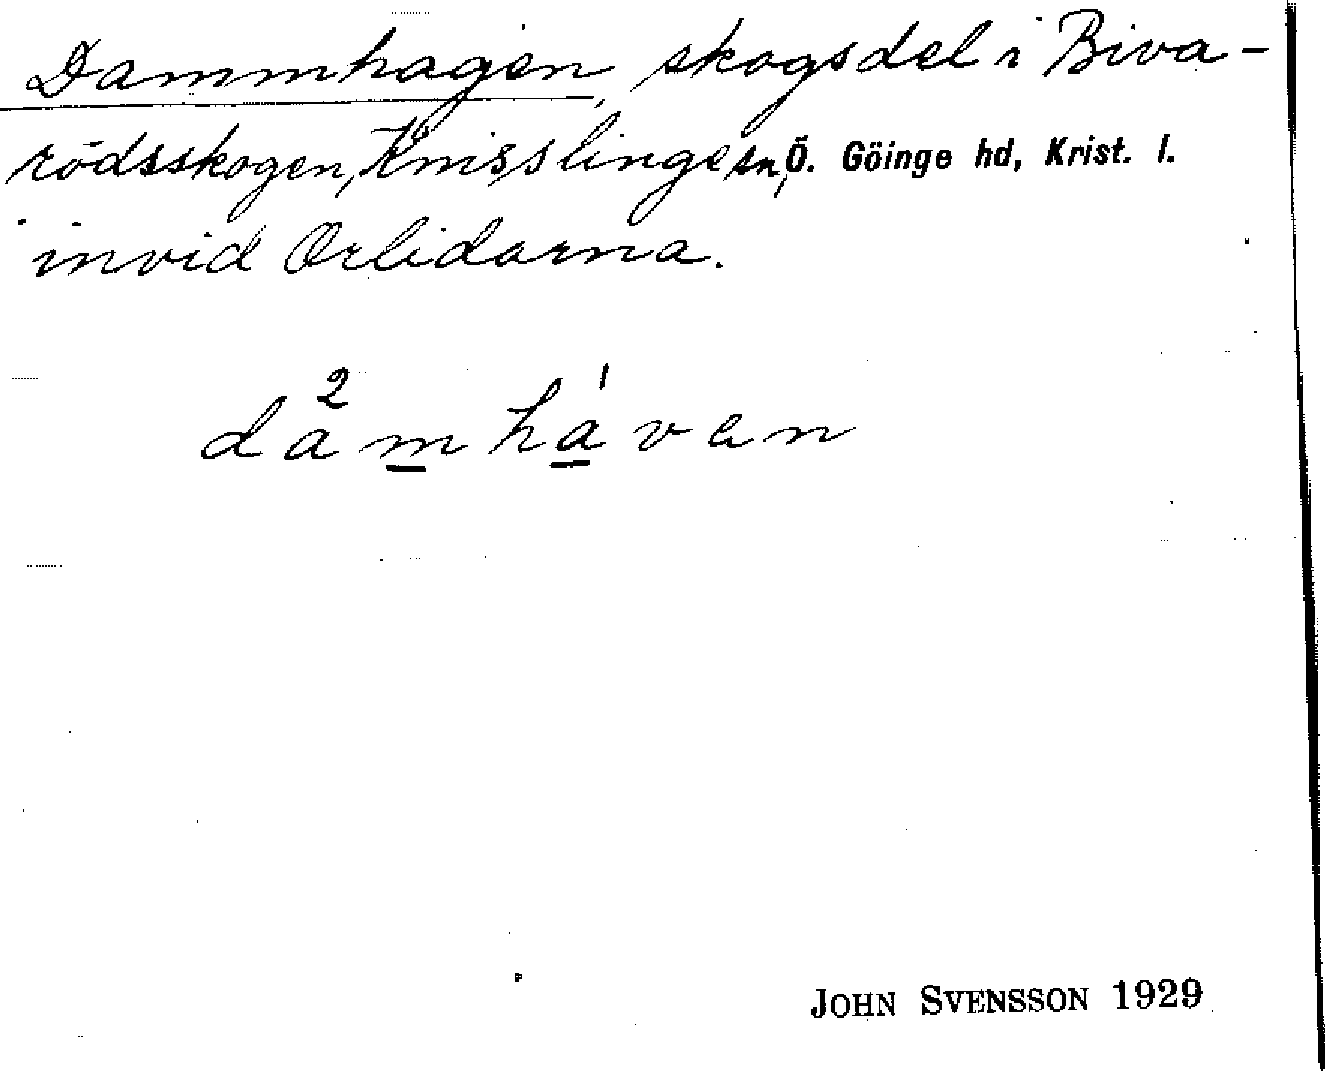 Dammhagen, skogsdel i Biva-
rödsskogen, Knisslinge sn, Ö. Göinge hd, Krist. l.
invid Orlidarna.
da²mha¹ven
JOHN SVENSSON 1929